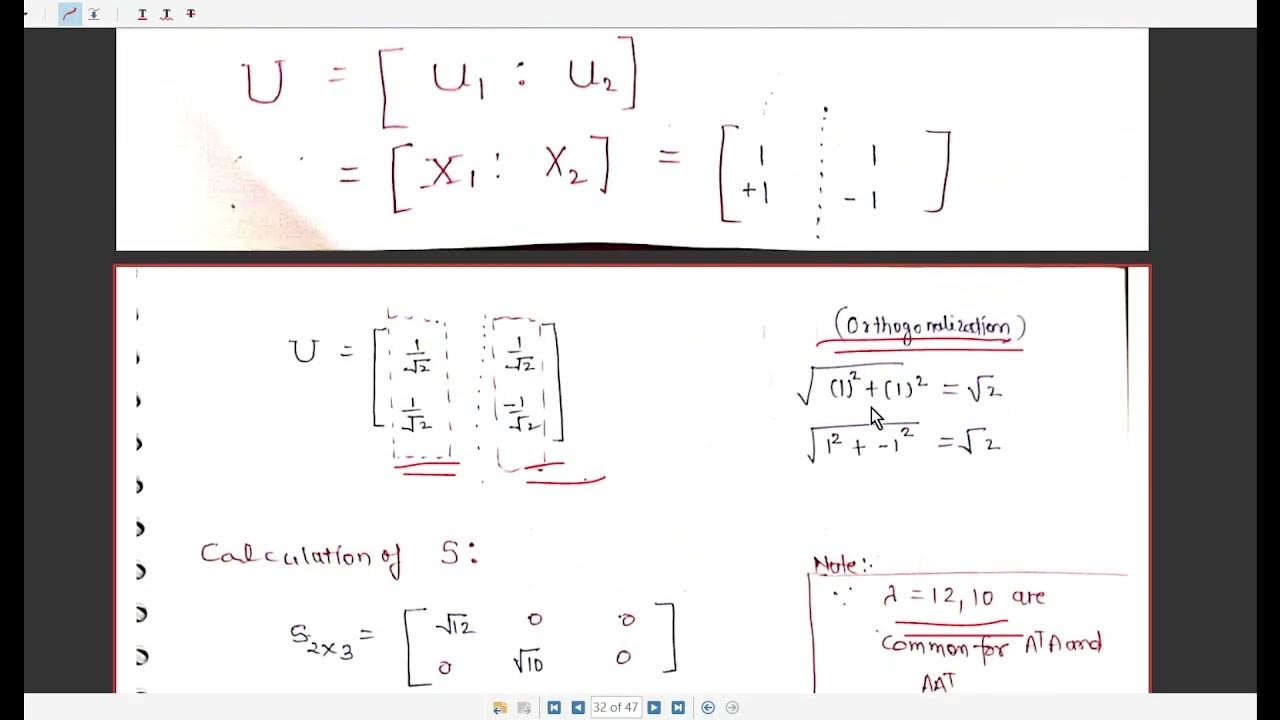 T T T
U = [ U₁ : U₂ ]
= [ X₁ : X₂ ] = [ 1 ⋮ 1
+1 ⋮ -1 ]
(Orthogonalization)
U = [ 1/√2 ⋮ 1/√2
1/√2 ⋮ -1/√2 ]
√(1)² + (1)² = √2
√1² + -1² = √2
Calculation of S:
S₂ₓ₃ = [ √12 0 0
0 √10 0 ]
Note:.
∵ λ = 12, 10 are
common for AᵀA and
AAᵀ
32 of 47